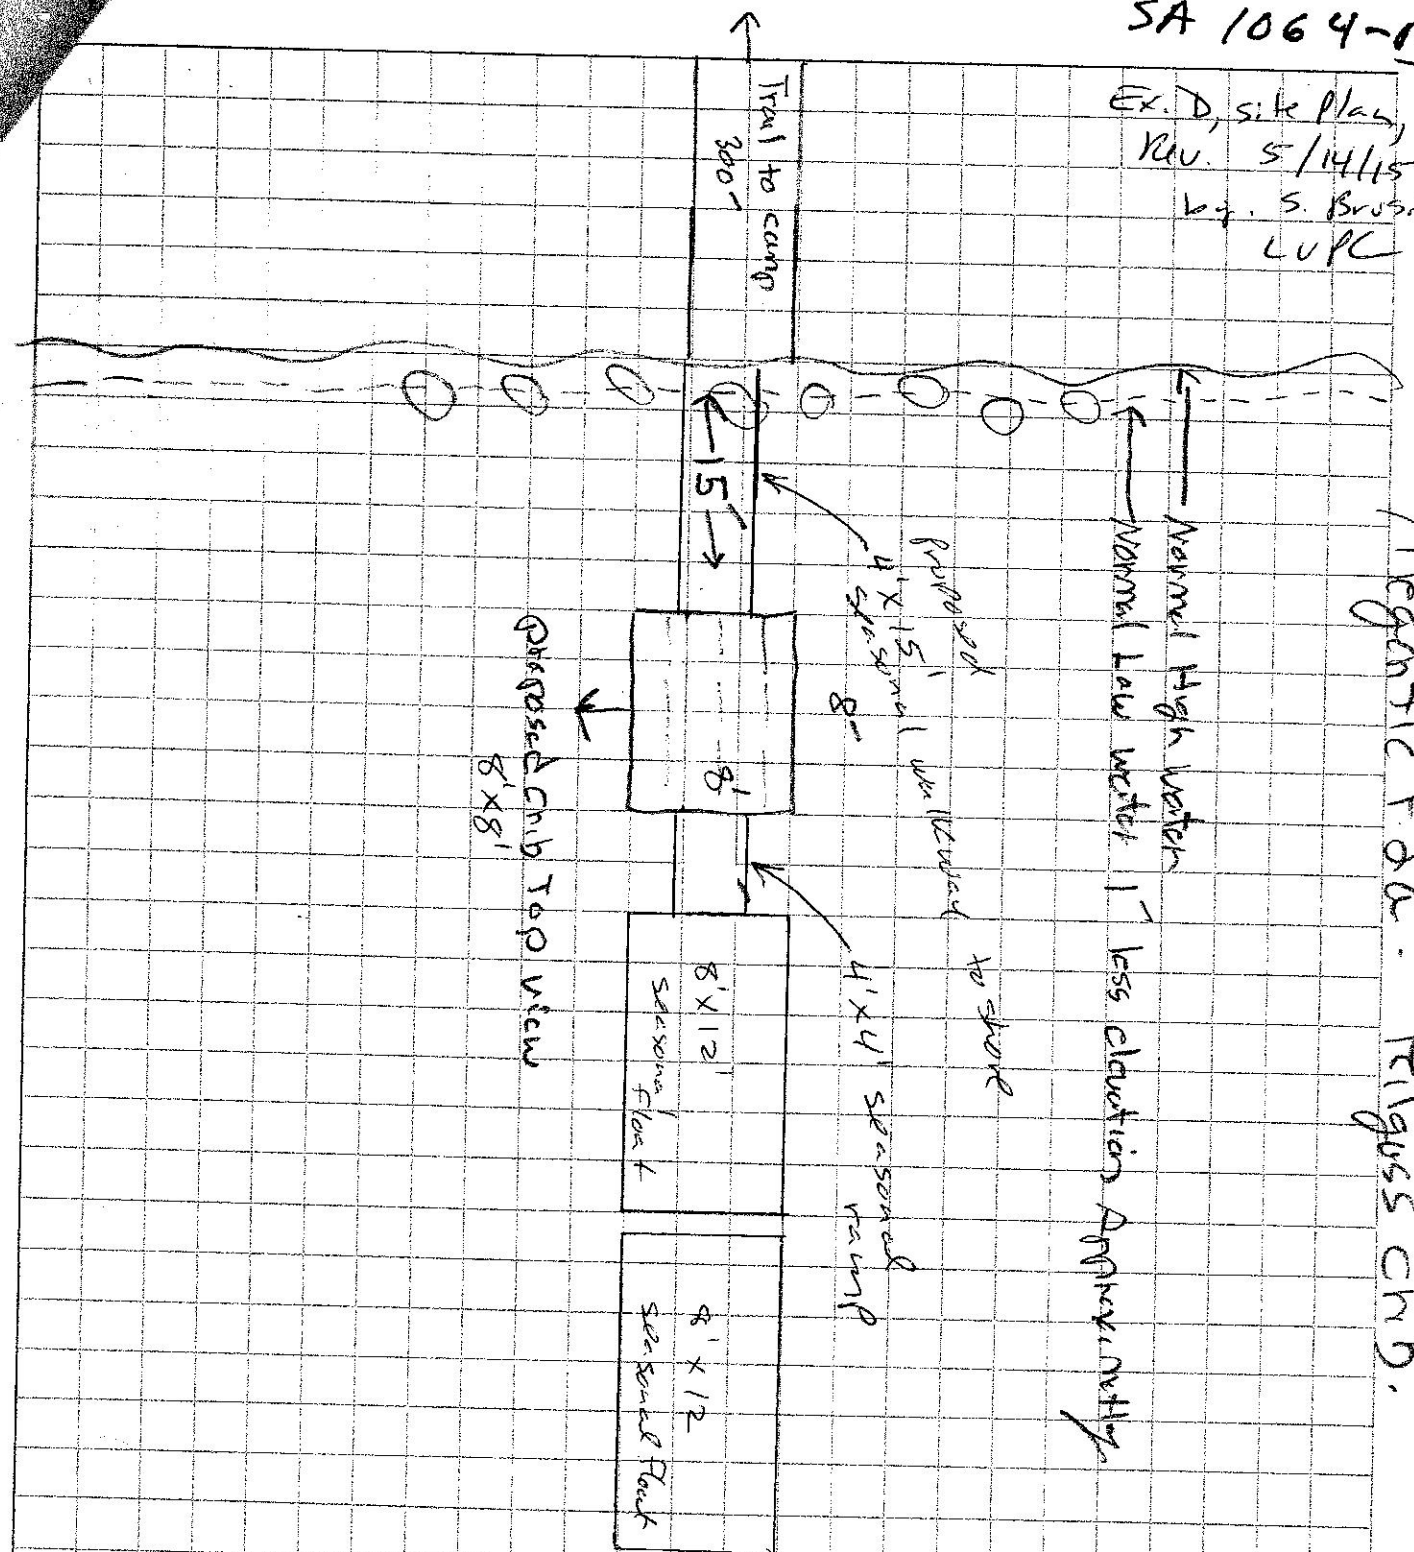 SA 1064-
Ex. D, Site Plan,
Rev. 5/14/15
by. S.
LUPC
Trail to camp
300'
Normal High Water
Normal Low water 1' less elevation Approximately
15'
proposed
4' x 15'
seasonal walkway to shore
8'
8'
proposed Crib Top view
8'x8'
4'x4' seasonal ramp
8'x12'
seasonal float
8' x 12
seasonal float